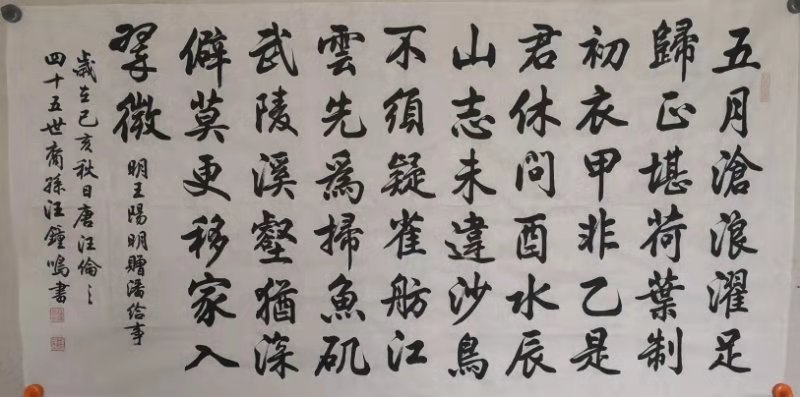 五月滄浪濯足
歸正堪荷葉制
初衣甲非乙是
君休問酉水辰
山志未違沙鳥
不須疑雀舫江
雲先爲掃魚矶
武陵溪壑猶深
僻莫更移家入
翠微
明王陽明贈潘给事
歲在己亥秋日唐汪倫之
四十五世裔孫汪鐘鳴書